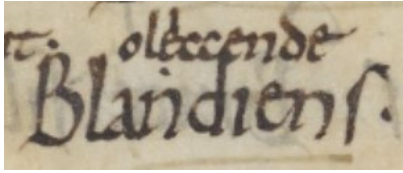 t. olęccende
Blandienſ.